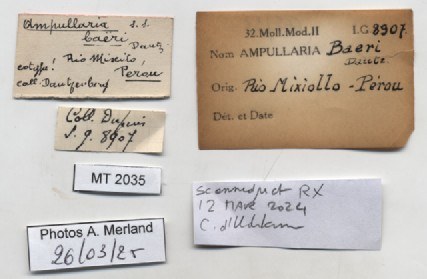 Ampullaria s.s.
baeri Dautz.
cotype! Rio Mixiollo,
Pérou
coll. Dautzenberg
Coll. Dupuis
I.g. 8907
MT 2035
Photos A. Merland
26/03/25
32.Moll.Mod.II I.G 8907
Nom AMPULLARIA Baeri
Dautz.
Orig. Rio Mixiollo - Pérou
Dét. et Date
Scanned RX
12 MAR 2024